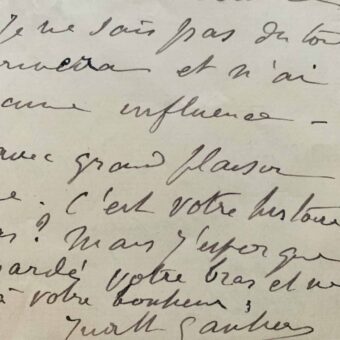 Je ne sais pas du tou
rrivera et n'ai
cune influence –
avec grand plaisir
e. C'est votre histoire
s? Mais j'espère que
gardé votre bras et ne
à votre bonheur;
Judith Gautier